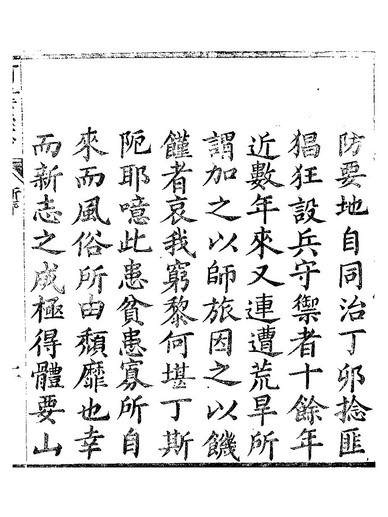 防要地自同治丁卯捻匪
猖狂設兵守禦者十餘年
近數年來又連遭荒旱所
謂加之以師旅因之以饑
饉者哀我窮黎何堪丁斯
阨耶噫此患貧患寡所自
來而風俗所由頹靡也幸
而新志之成極得體要山